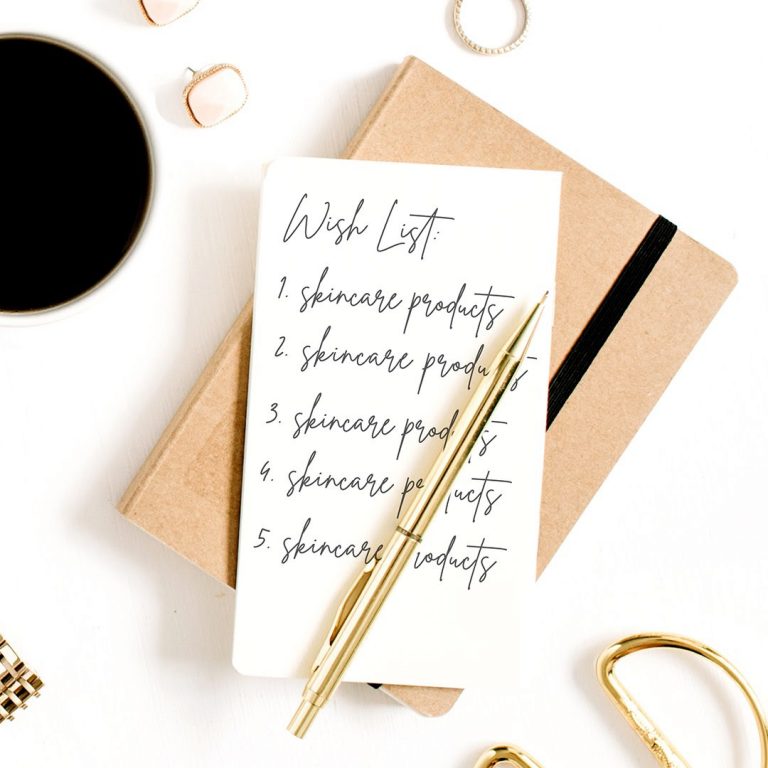 Wish List:
1. skincare products
2. skincare products
3. skincare products
4. skincare products
5. skincare products